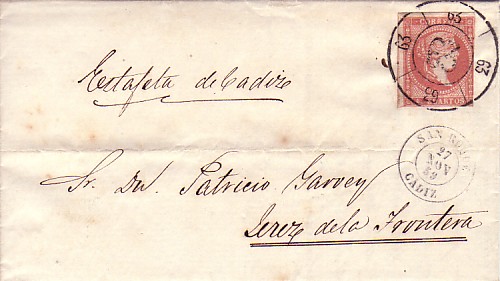 63
63 63
63
Estafeta de Cadiz
CUARTOS
SAN ROQUE
27
NOV
59
CADIZ
Sr. Dn. Patricio Garvey
Jerez de la Frontera